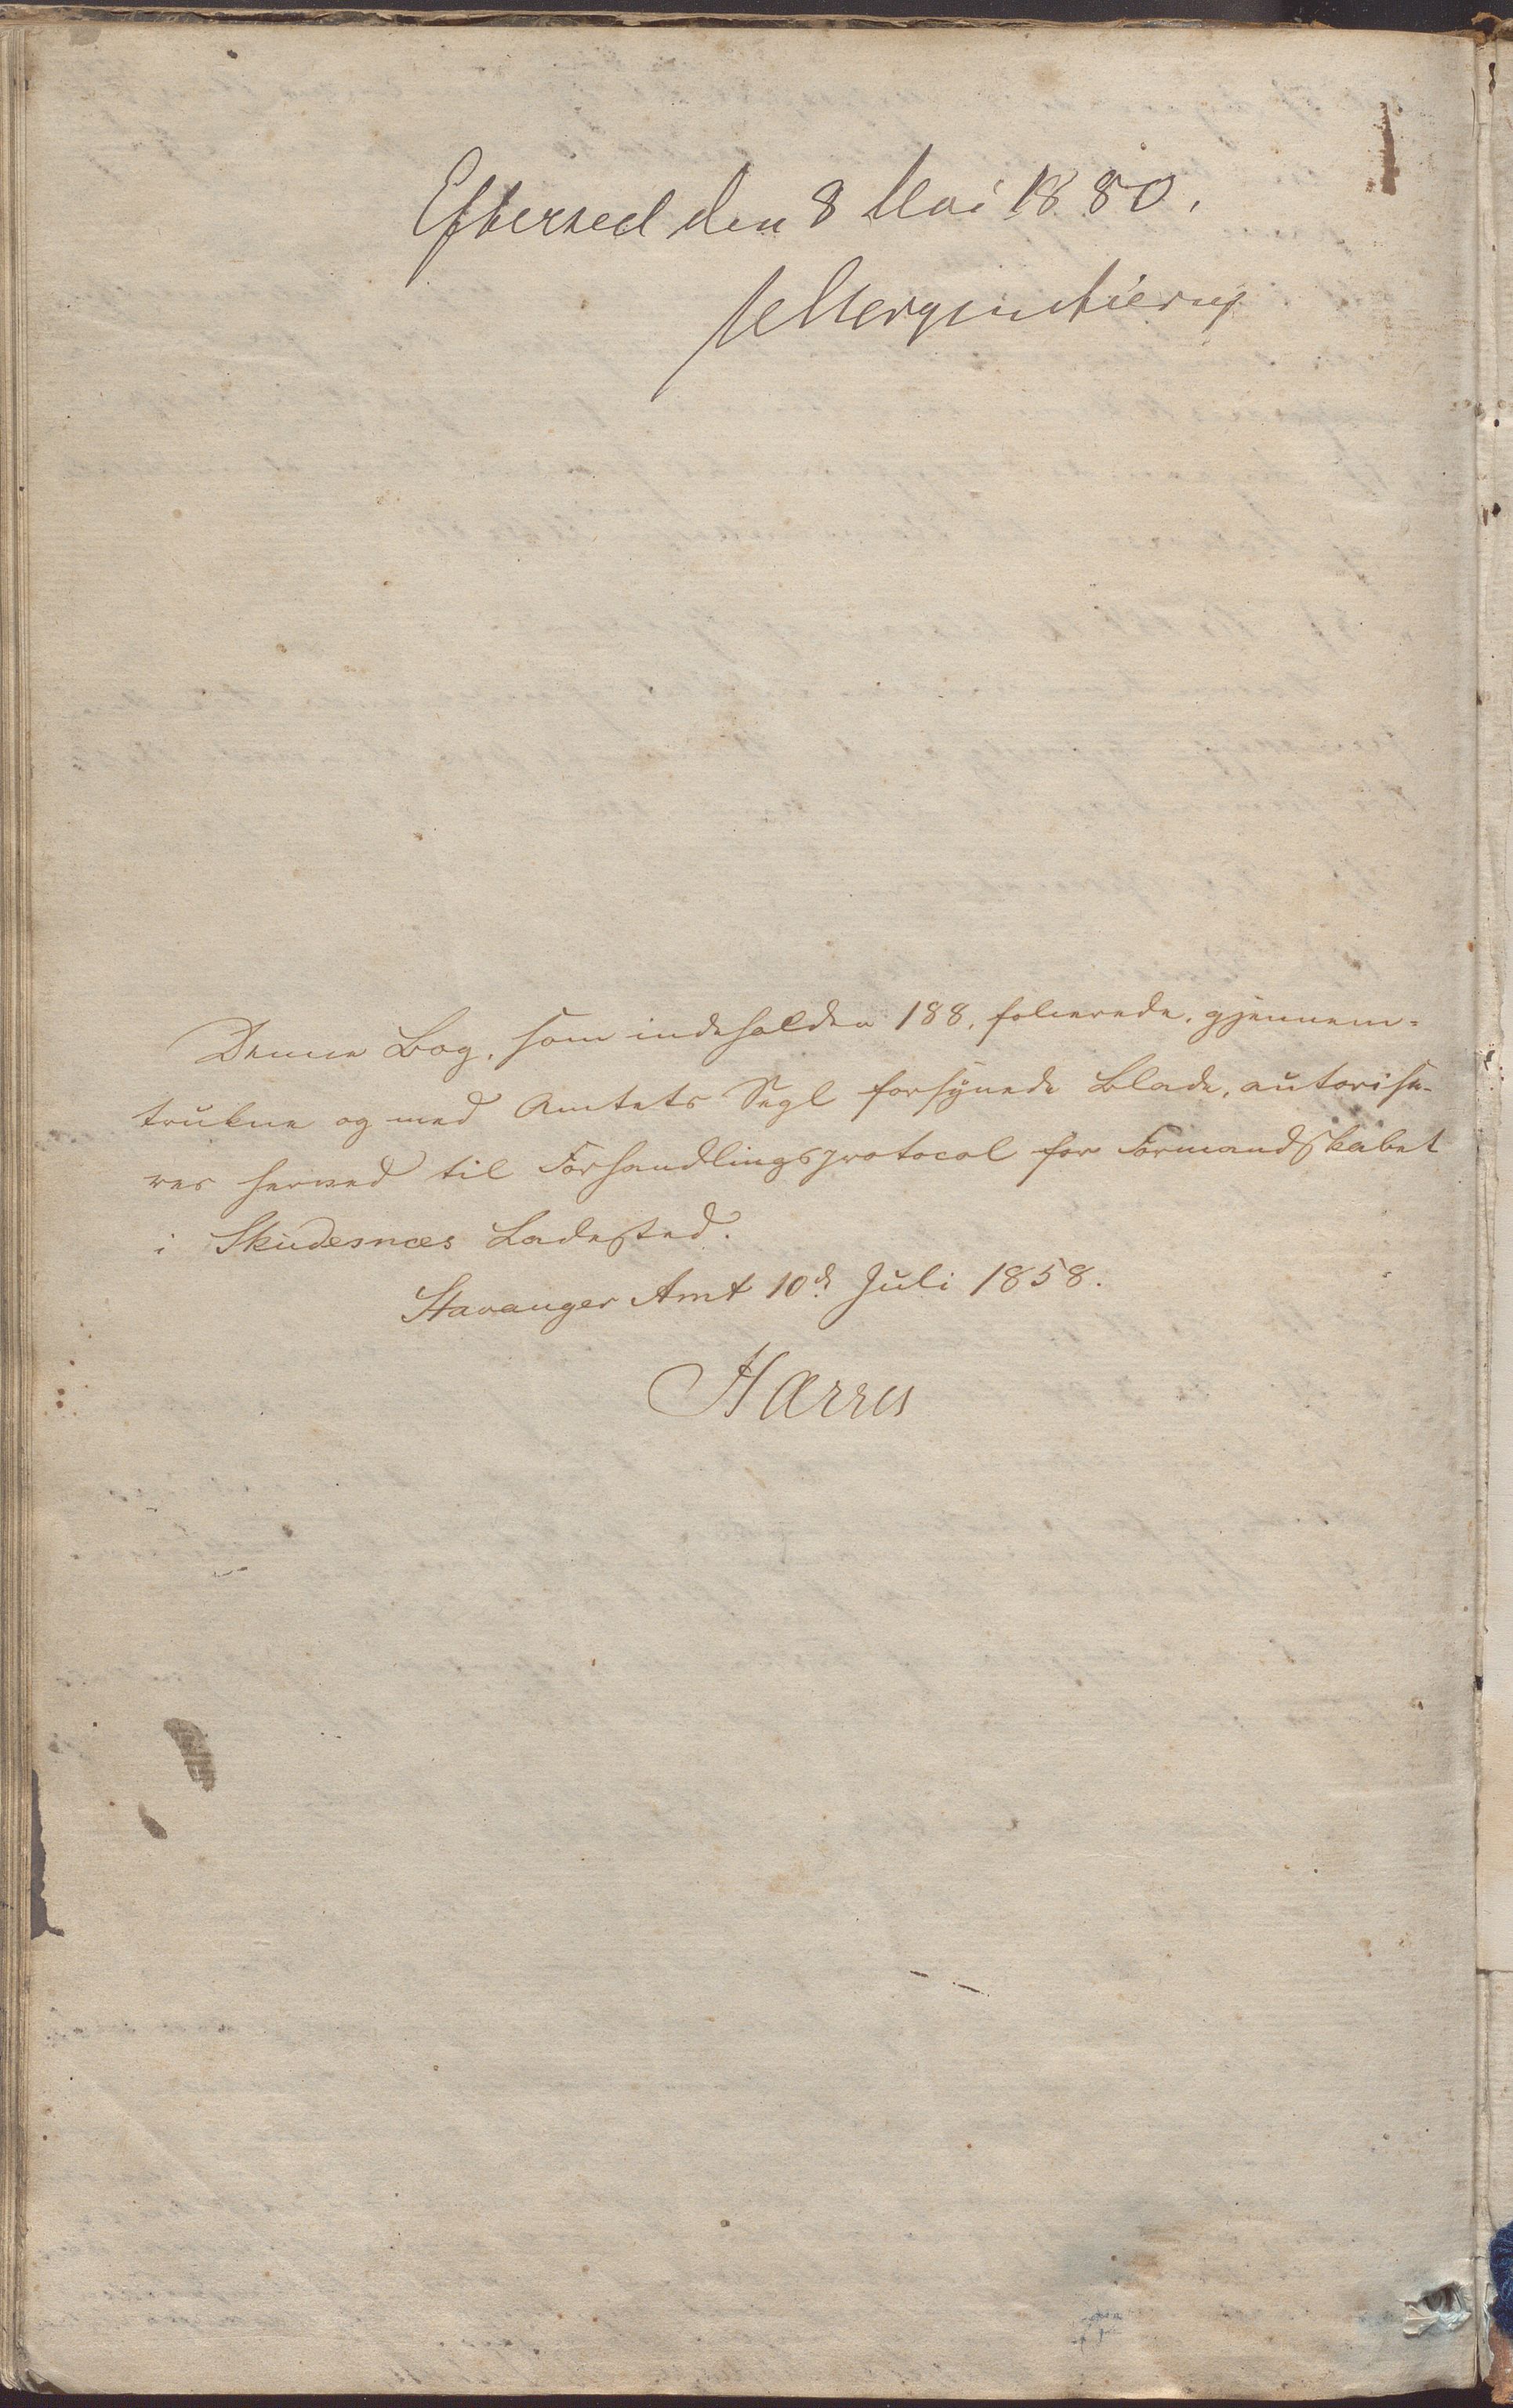 Efterseet den 8 Mai 1880.
Denne Bog, som indeholder 188, folierede, gjennem-
trukne og med Amtets Segl forsynede Blade, autorise-
res herved til Forhandlingsprotocol for Formandskabet
i Skudesnæs Ladested.
Stavanger Amt 10d Juli 1858.
Harris